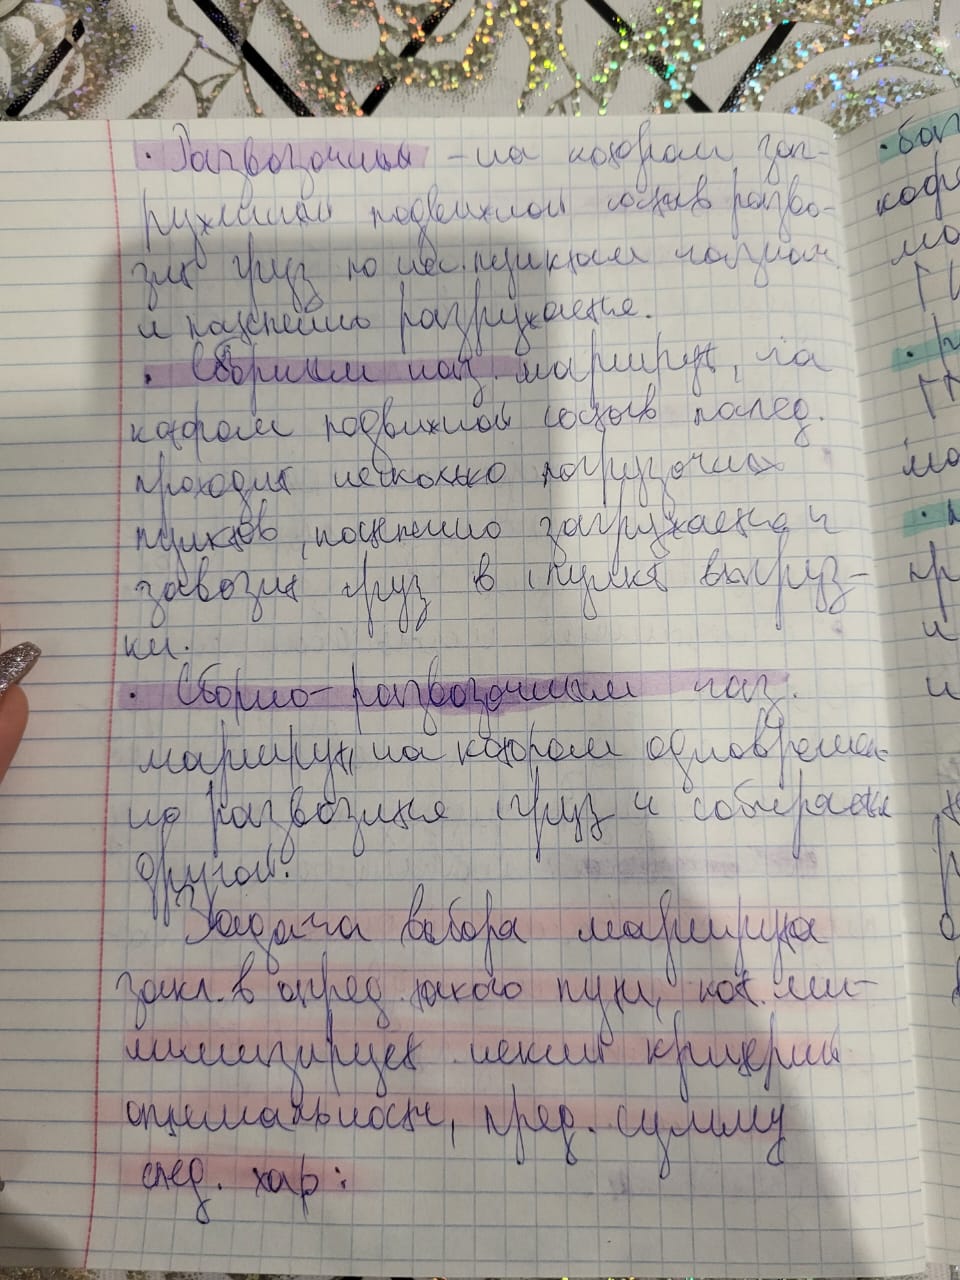 · Развозочный - на котором заг-
руженный подвижной состав разво-
зит груз по нес. пунктам назнач.
и постепенно разгружается.
· Сборным наз. маршрут, на
котором подвижной состав послед.
проходит несколько погрузочных
пунктов, постепенно загружается и
завозит груз в пункт выгруз-
ки.
· Сборно-развозочным наз.
маршрут, на котором одновремен-
но развозится груз и собирается
другой.
Задача выбора маршрута
закл. в опред. такого пути, кот. ми-
нимизирует некий критерий
оптимальности, пред. сумму
след. хар:
· 
· р
мо
и